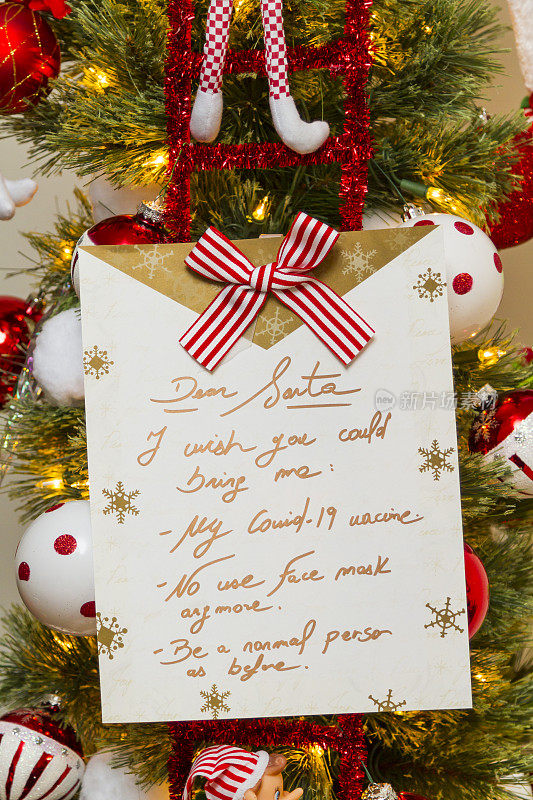 Dear Santa
I wish you could
bring me:
- My Covid-19 vaccine.
- No use face mask
anymore.
- Be a normal person
as before.
新图网